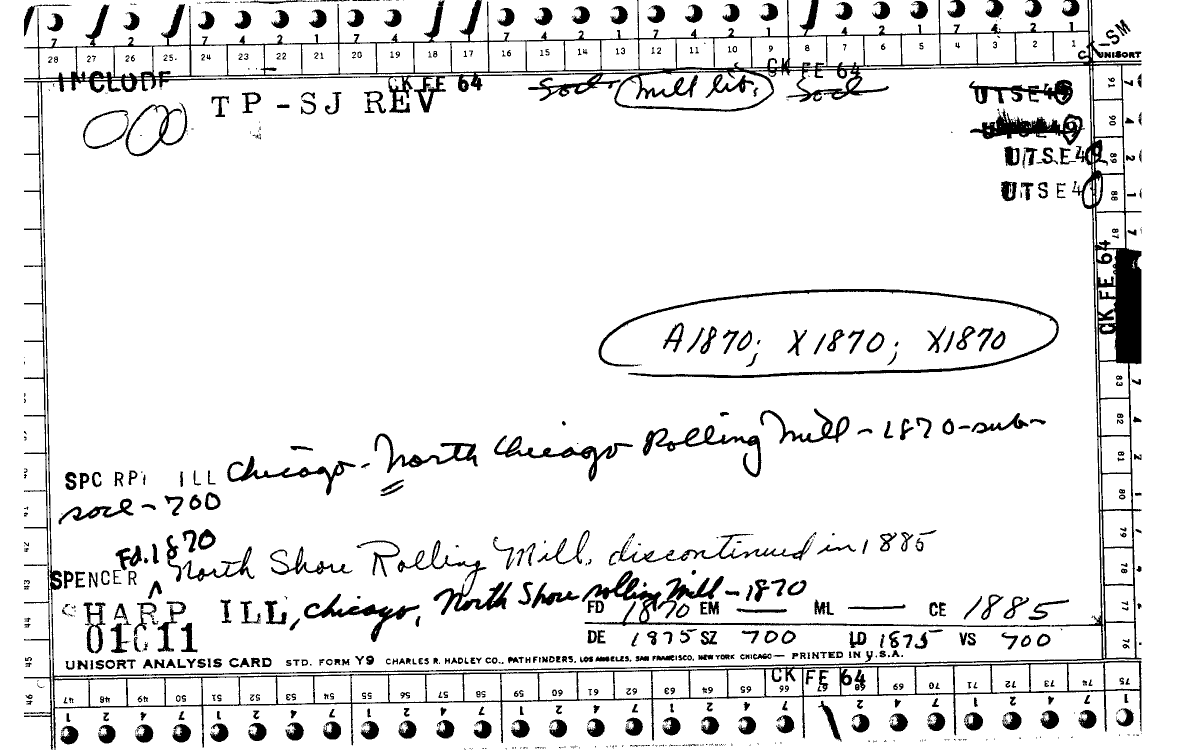 7 4 2 1 7 4 2 1 7 4 2 1 7 4 2 1 7 4 2 1 7 4 2 1
28 27 26 25 24 23 22 21 20 19 18 17 16 15 14 13 12 11 10 9 8 7 6 5 4 3 2 1 UNISORT
CT-SM
INCLUDE CK FE 64 CK FE 64
TP-SJ REV Socl. mill lib. Socl
UTSE49
UTSE49
UTSE49
UTSE49
CK FE 64
A1870; X1870; X1870
SPC RPT ILL Chicago - North Chicago Rolling Mill - 1870 - sub-
socl - 700
Fd. 1870
SPENCER ^ North Shore Rolling Mill, discontinued in 1885
SHARP ILL, Chicago, North Shore rolling Mill - 1870
FD 1870 EM — ML — CE 1885
01C11
DE 1875 SZ 700 LD 1875 VS 700
UNISORT ANALYSIS CARD STD. FORM Y9 CHARLES R. HADLEY CO., PATHFINDERS, LOS ANGELES, SAN FRANCISCO, NEW YORK CHICAGO — PRINTED IN U.S.A.
CK FE 64
47 48 49 50 51 52 53 54 55 56 57 58 59 60 61 62 63 64 65 66 67 68 69 70 71 72 73 74 75